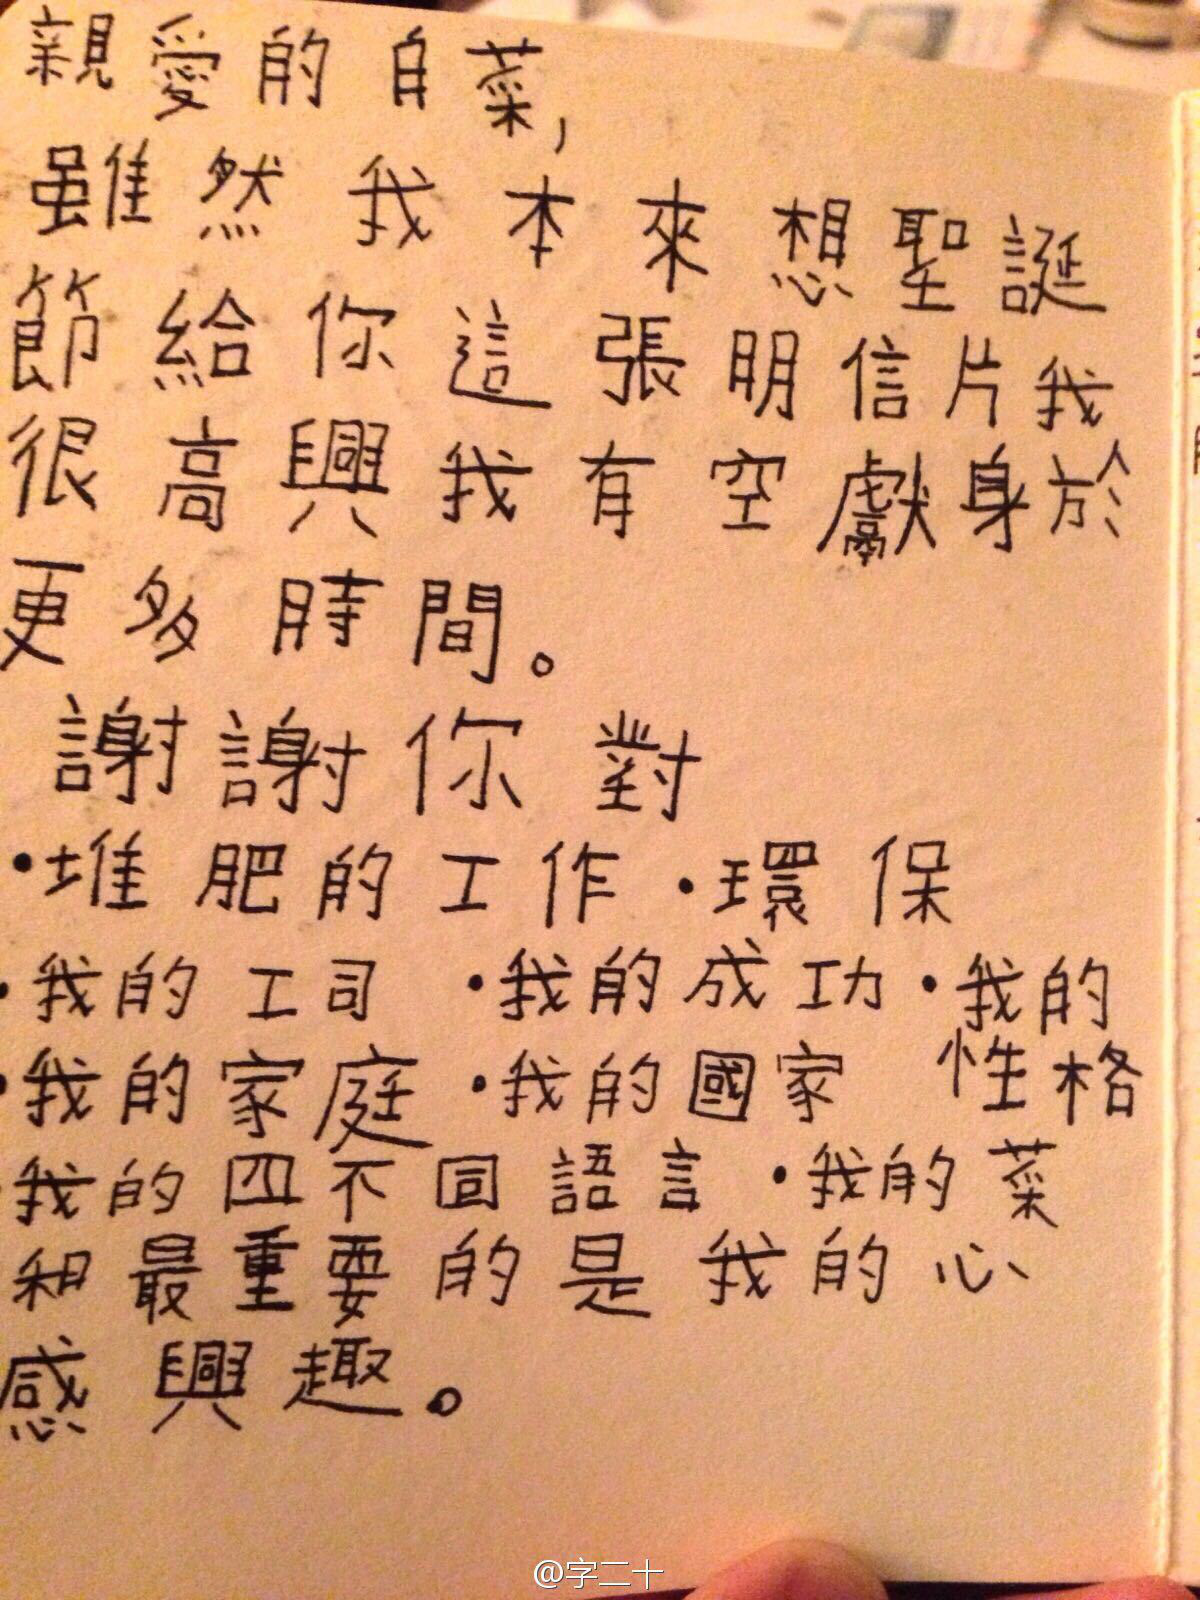 親愛的自菜,
雖然我本來想聖誕
節給你這張明信片我
很高興我有空獻身於
更多時間。
謝謝你對
·堆肥的工作·環保
·我的工司 ·我的成功·我的
性格
·我的家庭 ·我的國家
·我的四不同語言 ·我的菜
和最重要的是我的心
感興趣。
@字二十